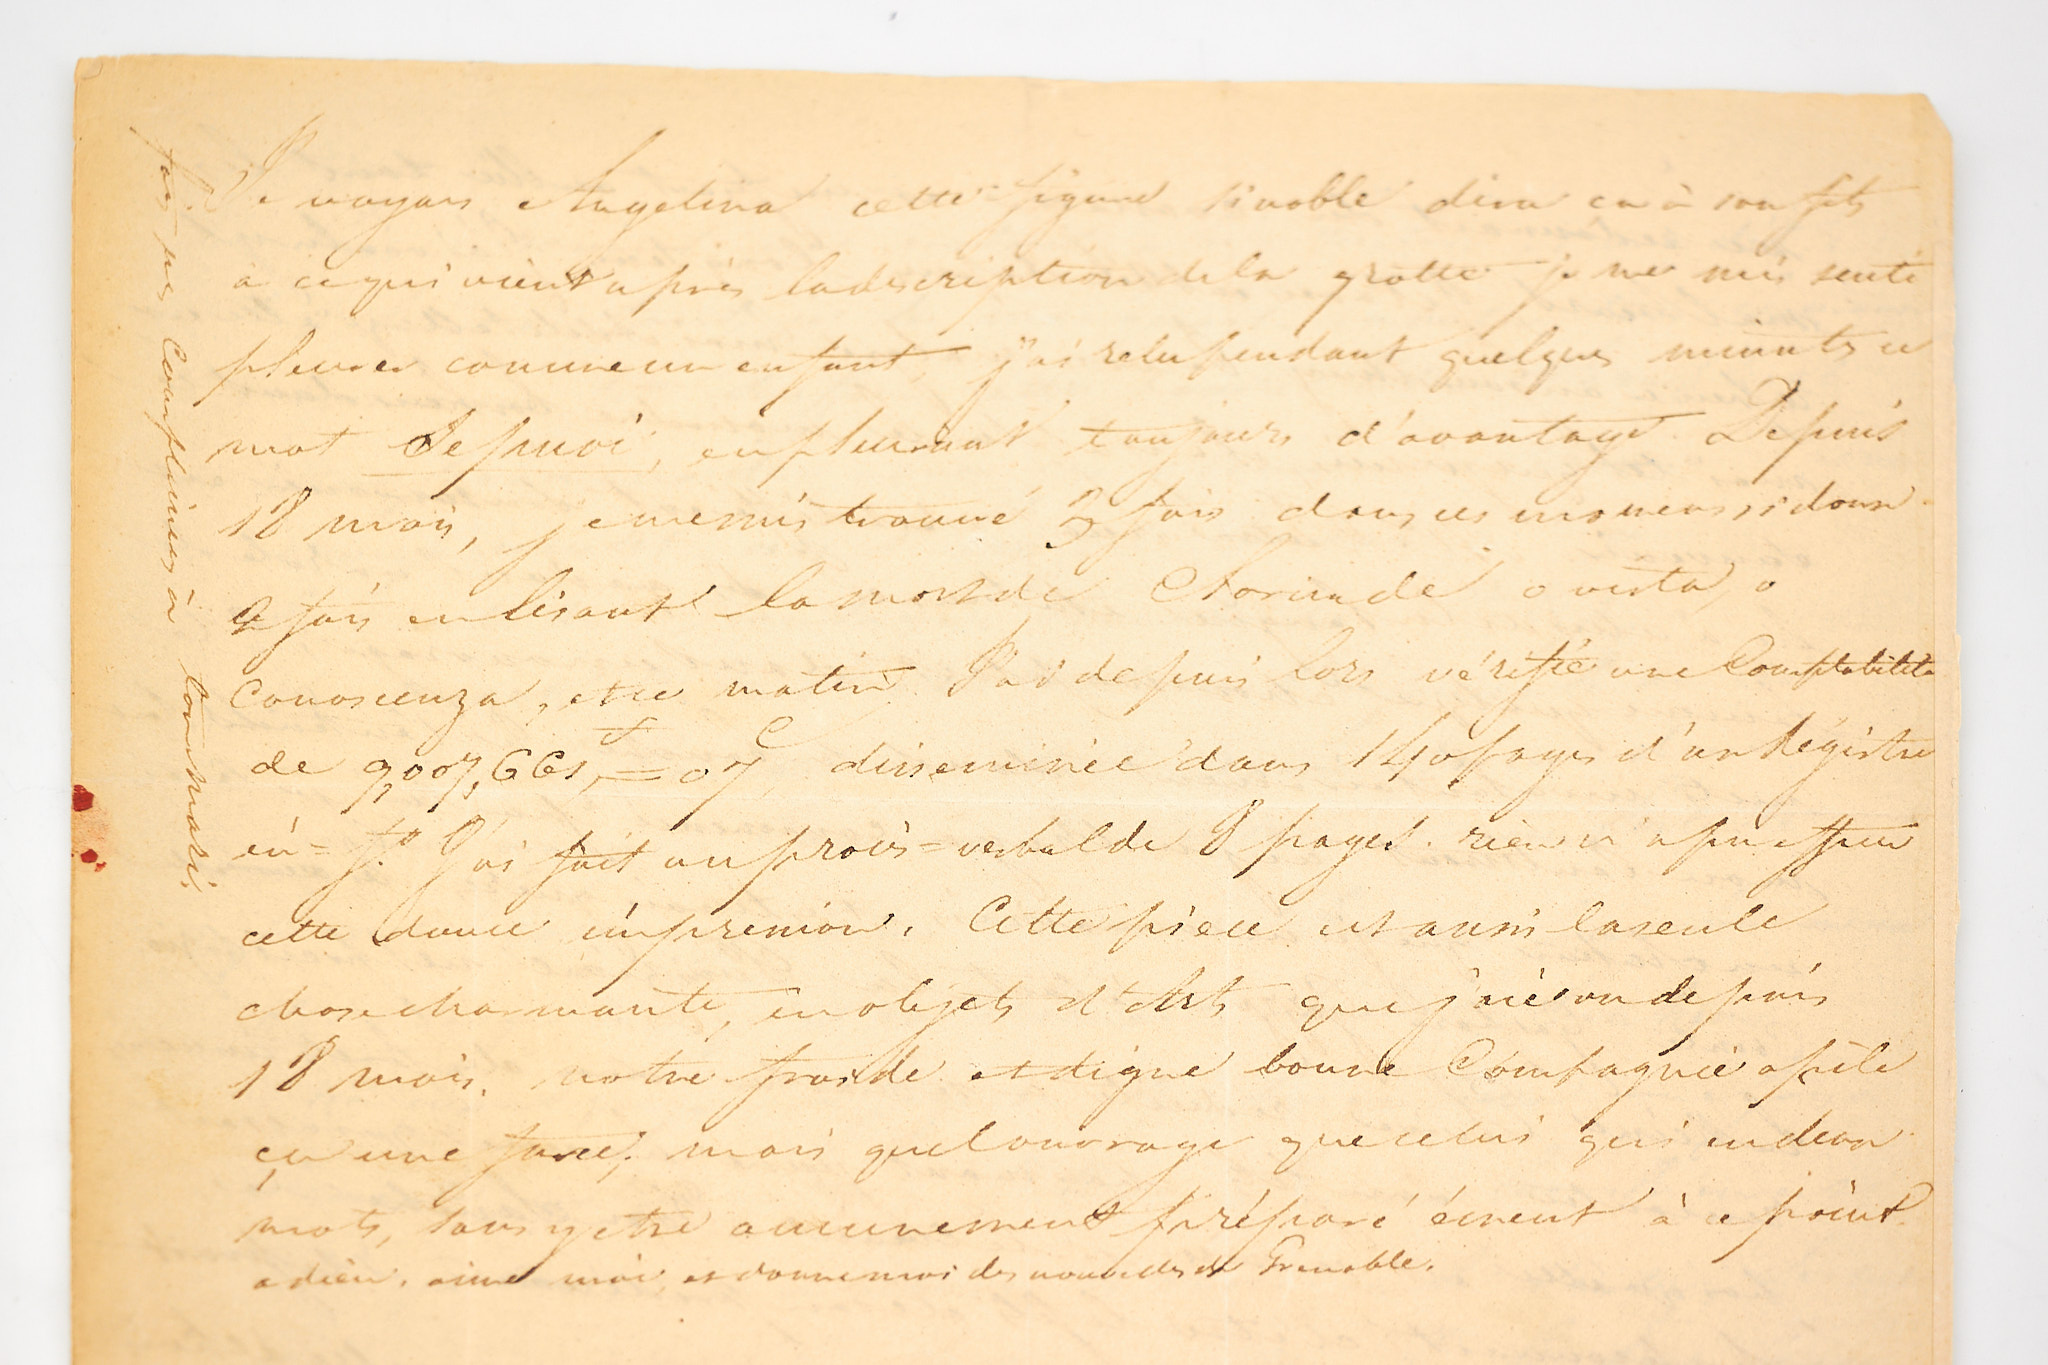 Je voyais Angelina cette figure si noble dire ca à son fils
à ce qui vient après la description de la grotte je me suis senti
pleurer comme un enfant, j'ai relu pendant quelques minutes ce
mot Se puoi, en pleurant toujours d'avantage. Depuis
18 mois, je me suis trouvé 3 fois dans ces momens si doux
2 fois en lisant la mort de Clorinde o vista, o
conoscenza, et ce matin. J'ai depuis lors vérifié une Comptabilité
de 9,007,661,f = 07c, disseminée dans 140 pages d'un Régistre
in-f.o J'ai fait un procès-verbal de 8 pages. rien n'a pu effacer
cette douce impression. Cette pièce est aussi la seule
chose charmante, en objets d'Arts que j'aie vu depuis
18 mois. notre froide et digne bonne Compagnie apèle
ça une farce; mais quel ouvrage que celui qui en deux
mots, sans y etre aucunement préparé émeut à ce point.
adieu. aime moi, et donne moi des nouvelles de Grenoble.
fais mes Complimens à ton mari.